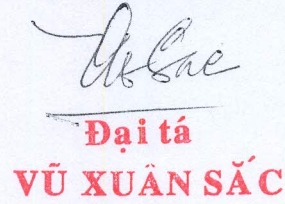 Đại tá
VŨ XUÂN SẮC